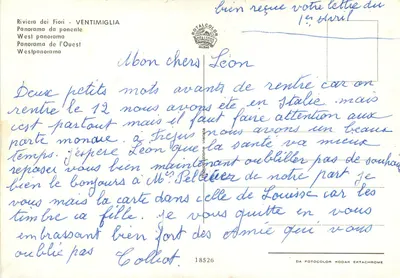 bien reçue votre lettre du
1er avril
Riviera dei Fiori - VENTIMIGLIA
Panorama da ponente
West panorama
Panorama de l'Ouest
Westpanorama
Mon chers Léon
Deux petits mots avants de rentré car on
rentre le 12 nous avons eté en Italie mais
c'est partout mais il faut faire attention aux
porte monaie. a Frejus nous avons un beaux
temps. j'espère Léon que la santé va mieux
reposez vous bien maintenant oubliller pas de souhai
bien le bonjours à Me de notre part je
vous mais la carte dans celle de Louisse car les
timbre ca fille. je vous quitte en vous
embrassant bien fort des Amie qui vous
oublie pas Colliot.
18526
DA FOTOCOLOR KODAK EKTACHROME